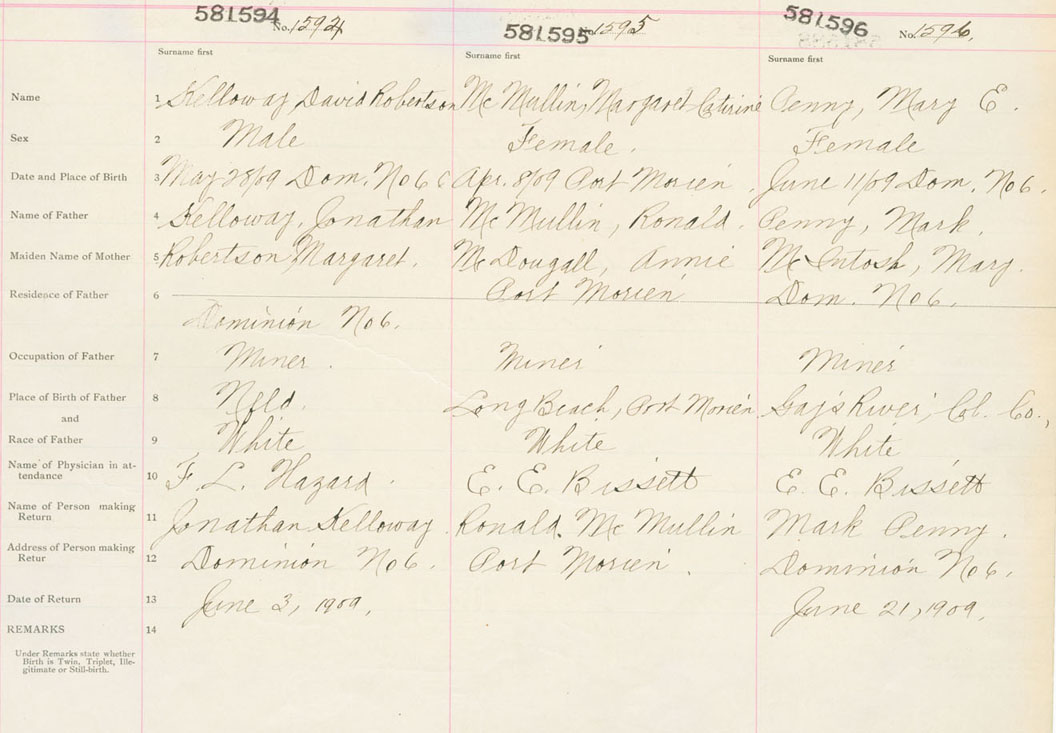 581594 No. 1594 581595 1595 581596 No. 1596.
Surname first Surname first Surname first
Name 1 Kelloway, David Robertson Mc Mullin, Margaret Catirine Penny, Mary E.
Sex 2 Male Female. Female
Date and Place of Birth 3 May 28/09 Dom. No 6 C Apr. 8/09 Port Morien. June 11/09 Dom. No 6.
Name of Father 4 Kelloway, Jonathan Mc Mullin, Ronald. Penny, Mark.
Maiden Name of Mother 5 Robertson, Margaret. Mc Dougall, Annie Mc Intosh, Mary.
Residence of Father 6 Port Morien Dom. No 6.
Dominion No 6.
Occupation of Father 7 Miner. Miner Miner
Place of Birth of Father 8 Nfld. Long Beach, Port Morien Gay's River, Col. Co.,
and
Race of Father 9 White White White
Name of Physician in at-
tendance 10 F. L. Hazard. E. E. Bissett E. E. Bissett
Name of Person making
Return 11 Jonathan Kelloway. Ronald. Mc Mullin Mark Penny.
Address of Person making
Retur 12 Dominion No 6. Port Morien. Dominion No 6.
Date of Return 13 June 3, 1909. June 21, 1909.
REMARKS 14
Under Remarks state whether
Birth is Twin, Triplet, Ille-
gitimate or Still-birth.